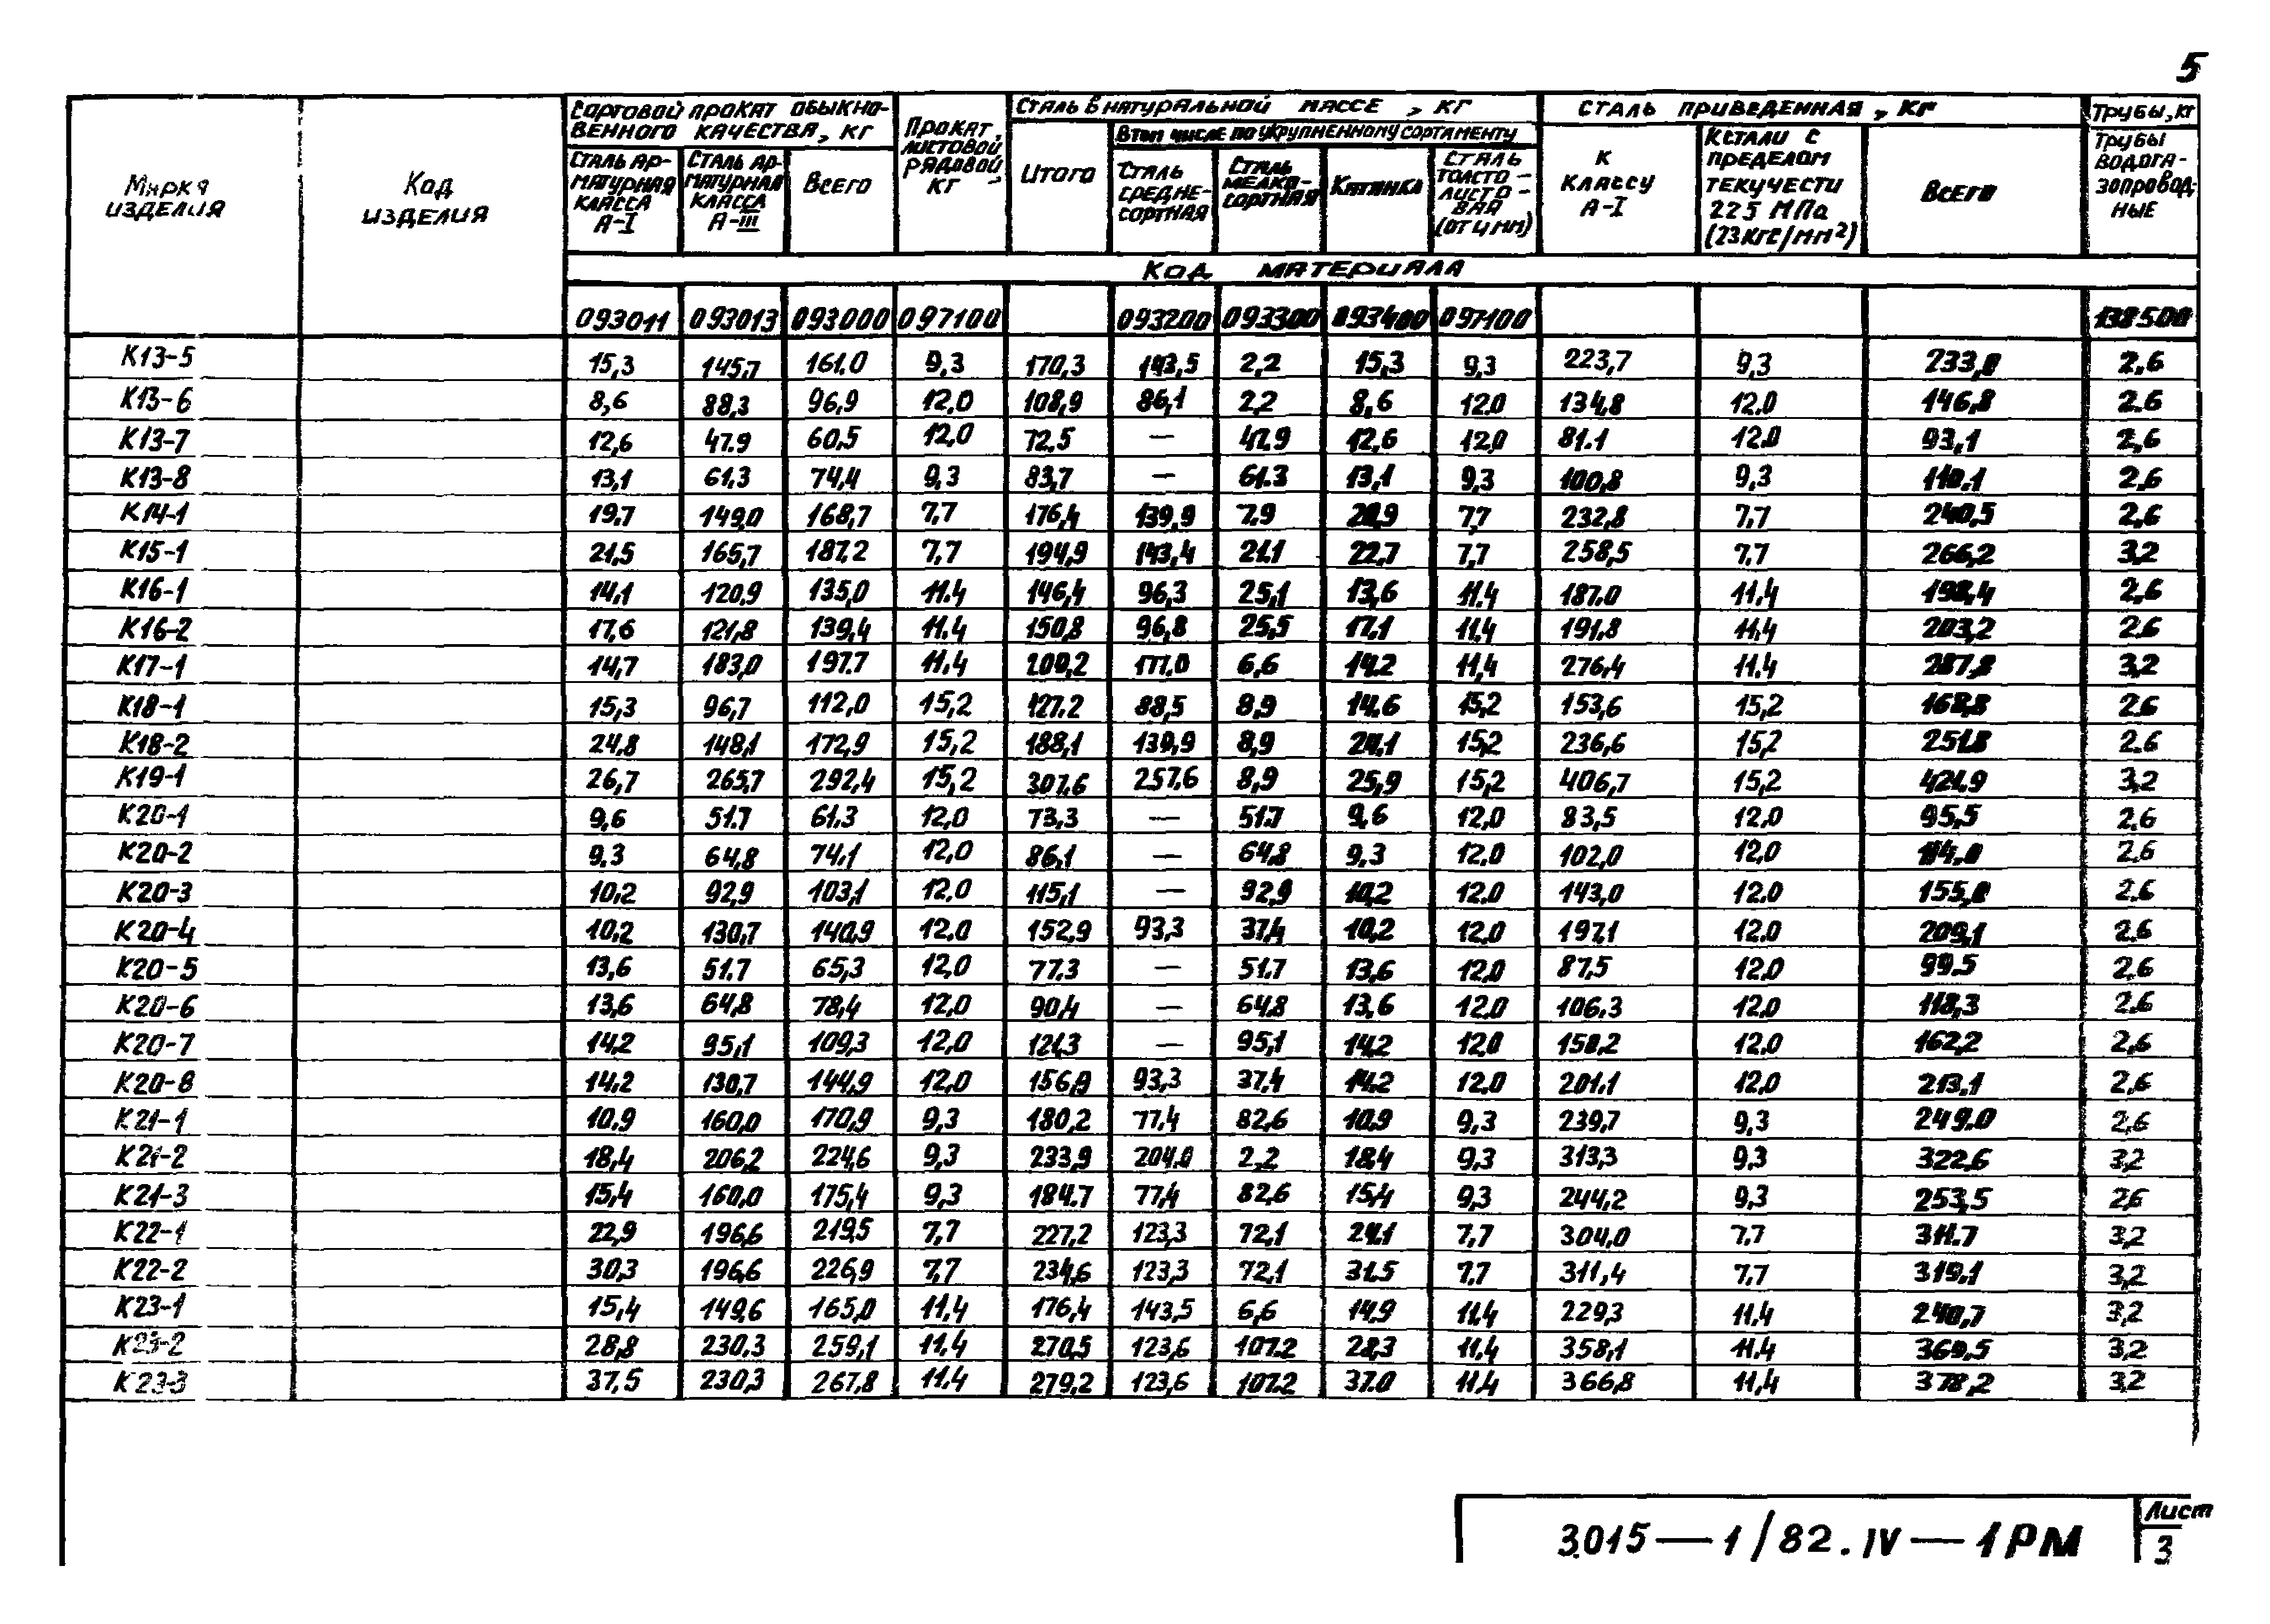 5
Марка изделия
Код изделия
Сортовой прокат обыкно-
венного качества, кг
Сталь ар-
матурная
класса
А-I
Сталь ар-
матурная
класса
А-III
Всего
Прокат
листовой
рядовой,
кг
Сталь в натуральной массе, кг
Итого
В том числе по укрупненному сортаменту
Сталь
средне-
сортная
Сталь
мелко-
сортная
Катанка
Сталь
толсто-
листо-
вая
(от 4 мм)
Сталь приведенная, кг
К
классу
А-I
К стали с
пределом
текучести
225 МПа
(23кгс/мм²)
Всего
Трубы, кг
Трубы
водога-
зопровод-
ные
Код материала
093011 093013 093000 097100 093200 093300 093400 097100 138500
К13-5 15,3 145,7 161,0 9,3 170,3 143,5 2,2 15,3 9,3 223,7 9,3 233,0 2,6
К13-6 8,6 88,3 96,9 12,0 108,9 86,1 2,2 8,6 12,0 134,8 12,0 146,8 2,6
К13-7 12,6 47,9 60,5 12,0 72,5 — 47,9 12,6 12,0 81,1 12,0 93,1 2,6
К13-8 13,1 61,3 74,4 9,3 83,7 — 61,3 13,1 9,3 100,8 9,3 110,1 2,6
К14-1 19,7 149,0 168,7 7,7 176,4 139,9 7,9 20,9 7,7 232,8 7,7 240,5 2,6
К15-1 21,5 165,7 187,2 7,7 194,9 143,4 21,1 22,7 7,7 258,5 7,7 266,2 3,2
К16-1 14,1 120,9 135,0 11,4 146,4 96,3 25,1 13,6 11,4 187,0 11,4 198,4 2,6
К16-2 17,6 121,8 139,4 11,4 150,8 96,8 25,5 17,1 11,4 191,8 11,4 203,2 2,6
К17-1 14,7 183,0 197,7 11,4 209,2 177,0 6,6 14,2 11,4 276,4 11,4 287,8 3,2
К18-1 15,3 96,7 112,0 15,2 127,2 88,5 8,9 14,6 15,2 153,6 15,2 168,8 2,6
К18-2 24,8 148,1 172,9 15,2 188,1 139,9 8,9 24,1 15,2 236,6 15,2 251,8 2,6
К19-1 26,7 265,7 292,4 15,2 307,6 257,6 8,9 25,9 15,2 406,7 15,2 421,9 3,2
К20-1 9,6 51,7 61,3 12,0 73,3 — 51,7 9,6 12,0 83,5 12,0 95,5 2,6
К20-2 9,3 64,8 74,1 12,0 86,1 — 64,8 9,3 12,0 102,0 12,0 114,0 2,6
К20-3 10,2 92,9 103,1 12,0 115,1 — 92,9 10,2 12,0 143,0 12,0 155,0 2,6
К20-4 10,2 130,7 140,9 12,0 152,9 93,3 37,4 10,2 12,0 197,1 12,0 209,1 2,6
К20-5 13,6 51,7 65,3 12,0 77,3 — 51,7 13,6 12,0 87,5 12,0 99,5 2,6
К20-6 13,6 64,8 78,4 12,0 90,4 — 64,8 13,6 12,0 106,3 12,0 118,3 2,6
К20-7 14,2 95,1 109,3 12,0 121,3 — 95,1 14,2 12,0 150,2 12,0 162,2 2,6
К20-8 14,2 130,7 144,9 12,0 156,9 93,3 37,4 14,2 12,0 201,1 12,0 213,1 2,6
К21-1 10,9 160,0 170,9 9,3 180,2 77,4 82,6 10,9 9,3 239,7 9,3 249,0 2,6
К21-2 18,4 206,2 224,6 9,3 233,9 204,0 2,2 18,4 9,3 313,3 9,3 322,6 3,2
К21-3 15,4 160,0 175,4 9,3 184,7 77,4 82,6 15,4 9,3 244,2 9,3 253,5 2,6
К22-1 22,9 196,6 219,5 7,7 227,2 123,3 72,1 24,1 7,7 304,0 7,7 311,7 3,2
К22-2 30,3 196,6 226,9 7,7 234,6 123,3 72,1 31,5 7,7 311,4 7,7 319,1 3,2
К23-1 15,4 149,6 165,0 11,4 176,4 143,5 6,6 14,9 11,4 229,3 11,4 240,7 3,2
К23-2 28,8 230,3 259,1 11,4 270,5 123,6 107,2 28,3 11,4 358,1 11,4 369,5 3,2
К23-3 37,5 230,3 267,8 11,4 279,2 123,6 107,2 37,0 11,4 366,8 11,4 378,2 3,2
3.015—1/82.IV—1РМ
Лист
3